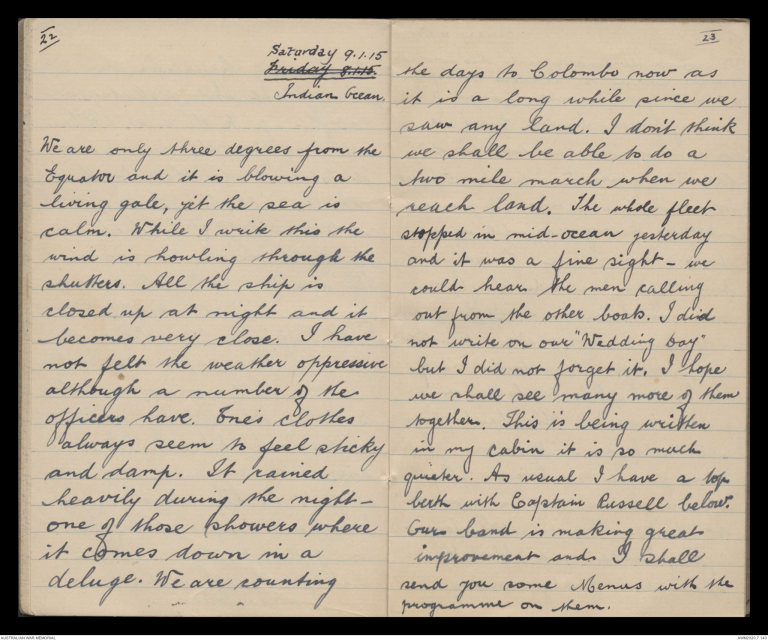 22
Saturday 9.1.15
Friday 8.1.15.
Indian Ocean.
We are only three degrees from the
Equator and it is blowing a
living gale, yet the sea is
calm. While I write this the
wind is howling through the
shutters. All the ship is
closed up at night and it
becomes very close. I have
not felt the weather oppressive
although a number of the
officers have. One's clothes
always seem to feel sticky
and damp. It rained
heavily during the night -
one of those showers where
it comes down in a
deluge. We are counting
23
the days to Colombo now as
it is a long while since we
saw any land. I don't think
we shall be able to do a
two mile march when we
reach land. The whole fleet
stopped in mid-ocean yesterday
and it was a fine sight - we
could hear the men calling
out from the other boats. I did
not write on our "Wedding Day"
but I did not forget it. I hope
we shall see many more of them
together. This is being written
in my cabin it is so much
quieter. As usual I have a top
berth with Captain Russell below.
Our band is making great
improvement and I shall
send you some Menus with the
programme on them.
AUSTRALIAN WAR MEMORIAL